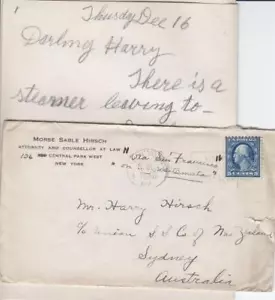 Thursday Dec 16
Darling Harry
There is a
steamer leaving to-
MORSE SABLE HIRSCH
ATTORNEY AND COUNSELLOR AT LAW
CENTRAL PARK WEST
NEW YORK
"via San Francisco
on S.S.
Mr. Harry Hirsch
c/o Union S S Co of New Zealand
Sydney
Australia